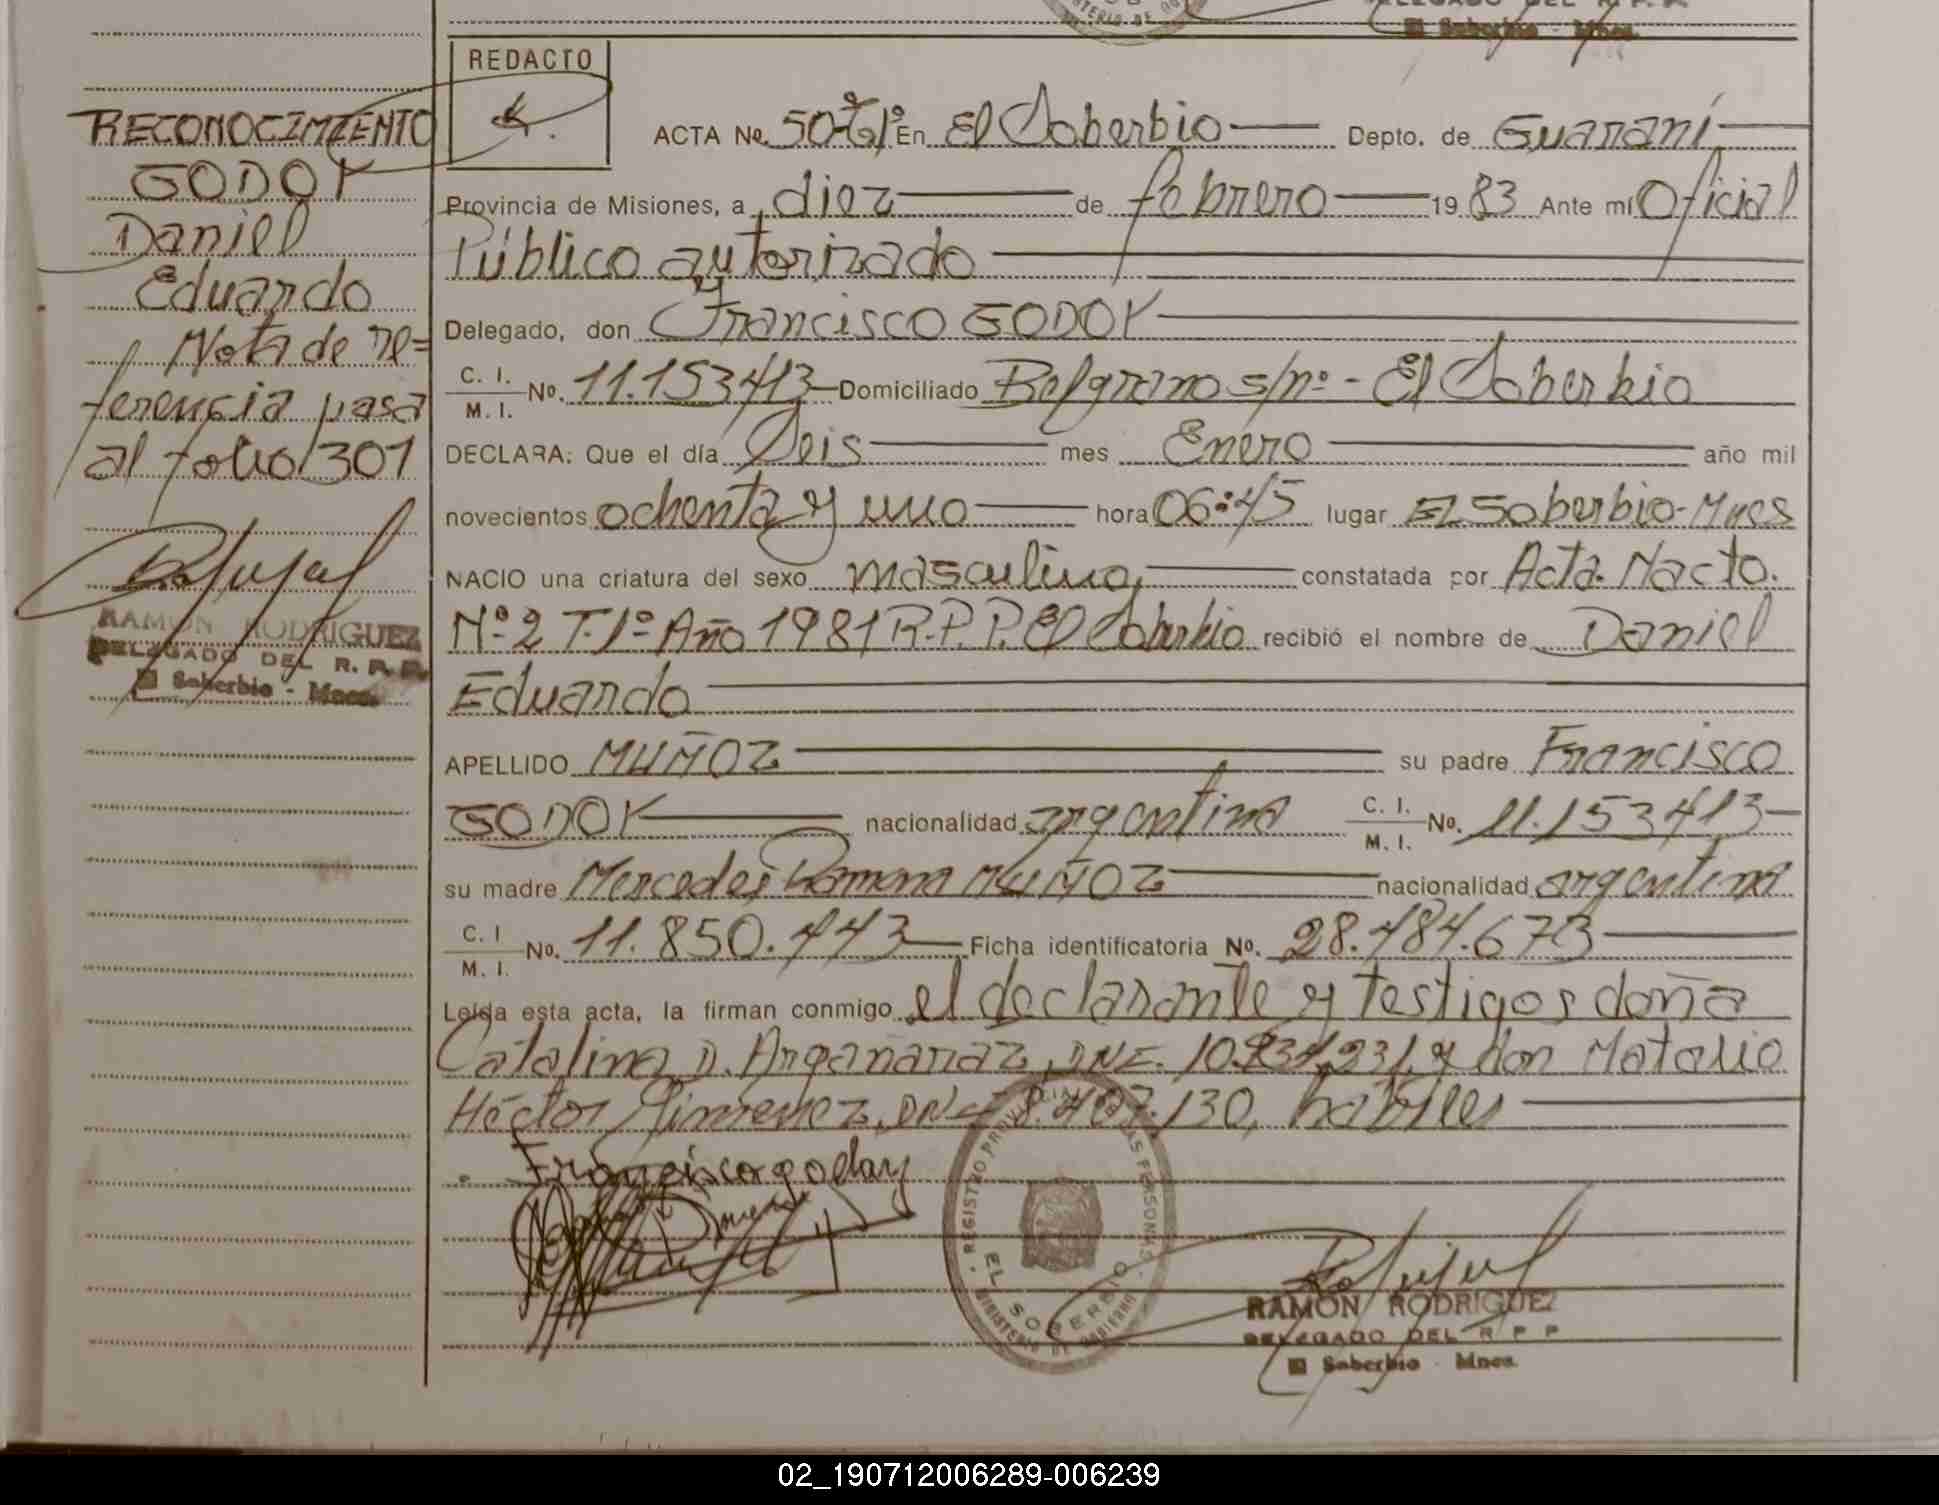 El Soberbio - Mnes.
REDACTO
RECONOCIMIENTO
GODOY
Daniel
Eduardo
Nota de re=
ferencia pasa
al folio 301
RAMON RODRIGUEZ
DELEGADO DEL R. P. P.
El Soberbio - Mnes.
ACTA No. 50-Tº1º En El Soberbio Depto. de Guaraní
Provincia de Misiones, a diez de febrero 1983 Ante mí Oficial
Público autorizado
Delegado, don Francisco GODOY
C. I. M. I. No. 11.153413 Domiciliado Belgrano s/nº - El Soberbio
DECLARA: Que el día Seis mes Enero año mil
novecientos ochenta y uno hora 06:45 lugar El Soberbio-Mnes
NACIO una criatura del sexo masculino, constatada por Acta. Nacto.
Nº 2 T. 1º Año 1981 R.P.P. El Soberbio recibió el nombre de Daniel
Eduardo
APELLIDO MUÑOZ su padre Francisco
GODOY nacionalidad argentina C. I. M. I. No. 11.153413
su madre Mercedes Ramona MUÑOZ nacionalidad argentina
C. I M. I. No. 11.850.443 Ficha identificatoria No. 28.484.673
Leída esta acta, la firman conmigo el declarante y testigos doña
Catalina D. Argañaraz, DNE. y don Natalio
Héctor Gimenez, habiles
Francisco godoy
REGISTRO PROVINCIAL DE LAS PERSONAS
EL SOBERBIO
MINISTERIO DE GOBIERNO
RAMON RODRIGUEZ
DELEGADO DEL R P P
El Soberbio - Mnes.
02_190712006289-006239